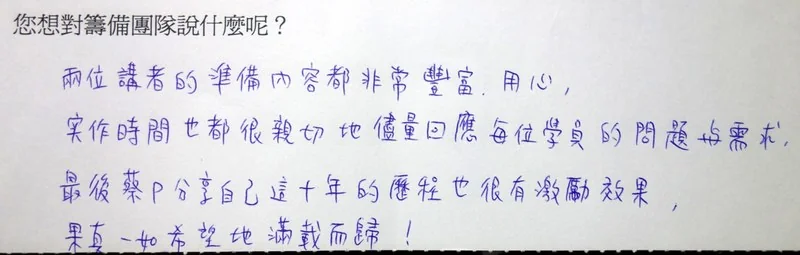 您想對籌備團隊說什麼呢？
兩位講者的準備內容都非常豐富、用心，
實作時間也都很親切地儘量回應每位學員的問題與需求，
最後蔡P分享自己這十年的歷程也很有激勵效果，
果真一如希望地滿載而歸！